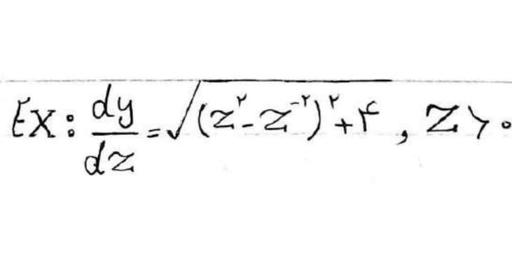 EX: dy/dz = √((z^۲ - z^-۲)^۲ + ۴) , z > ۰